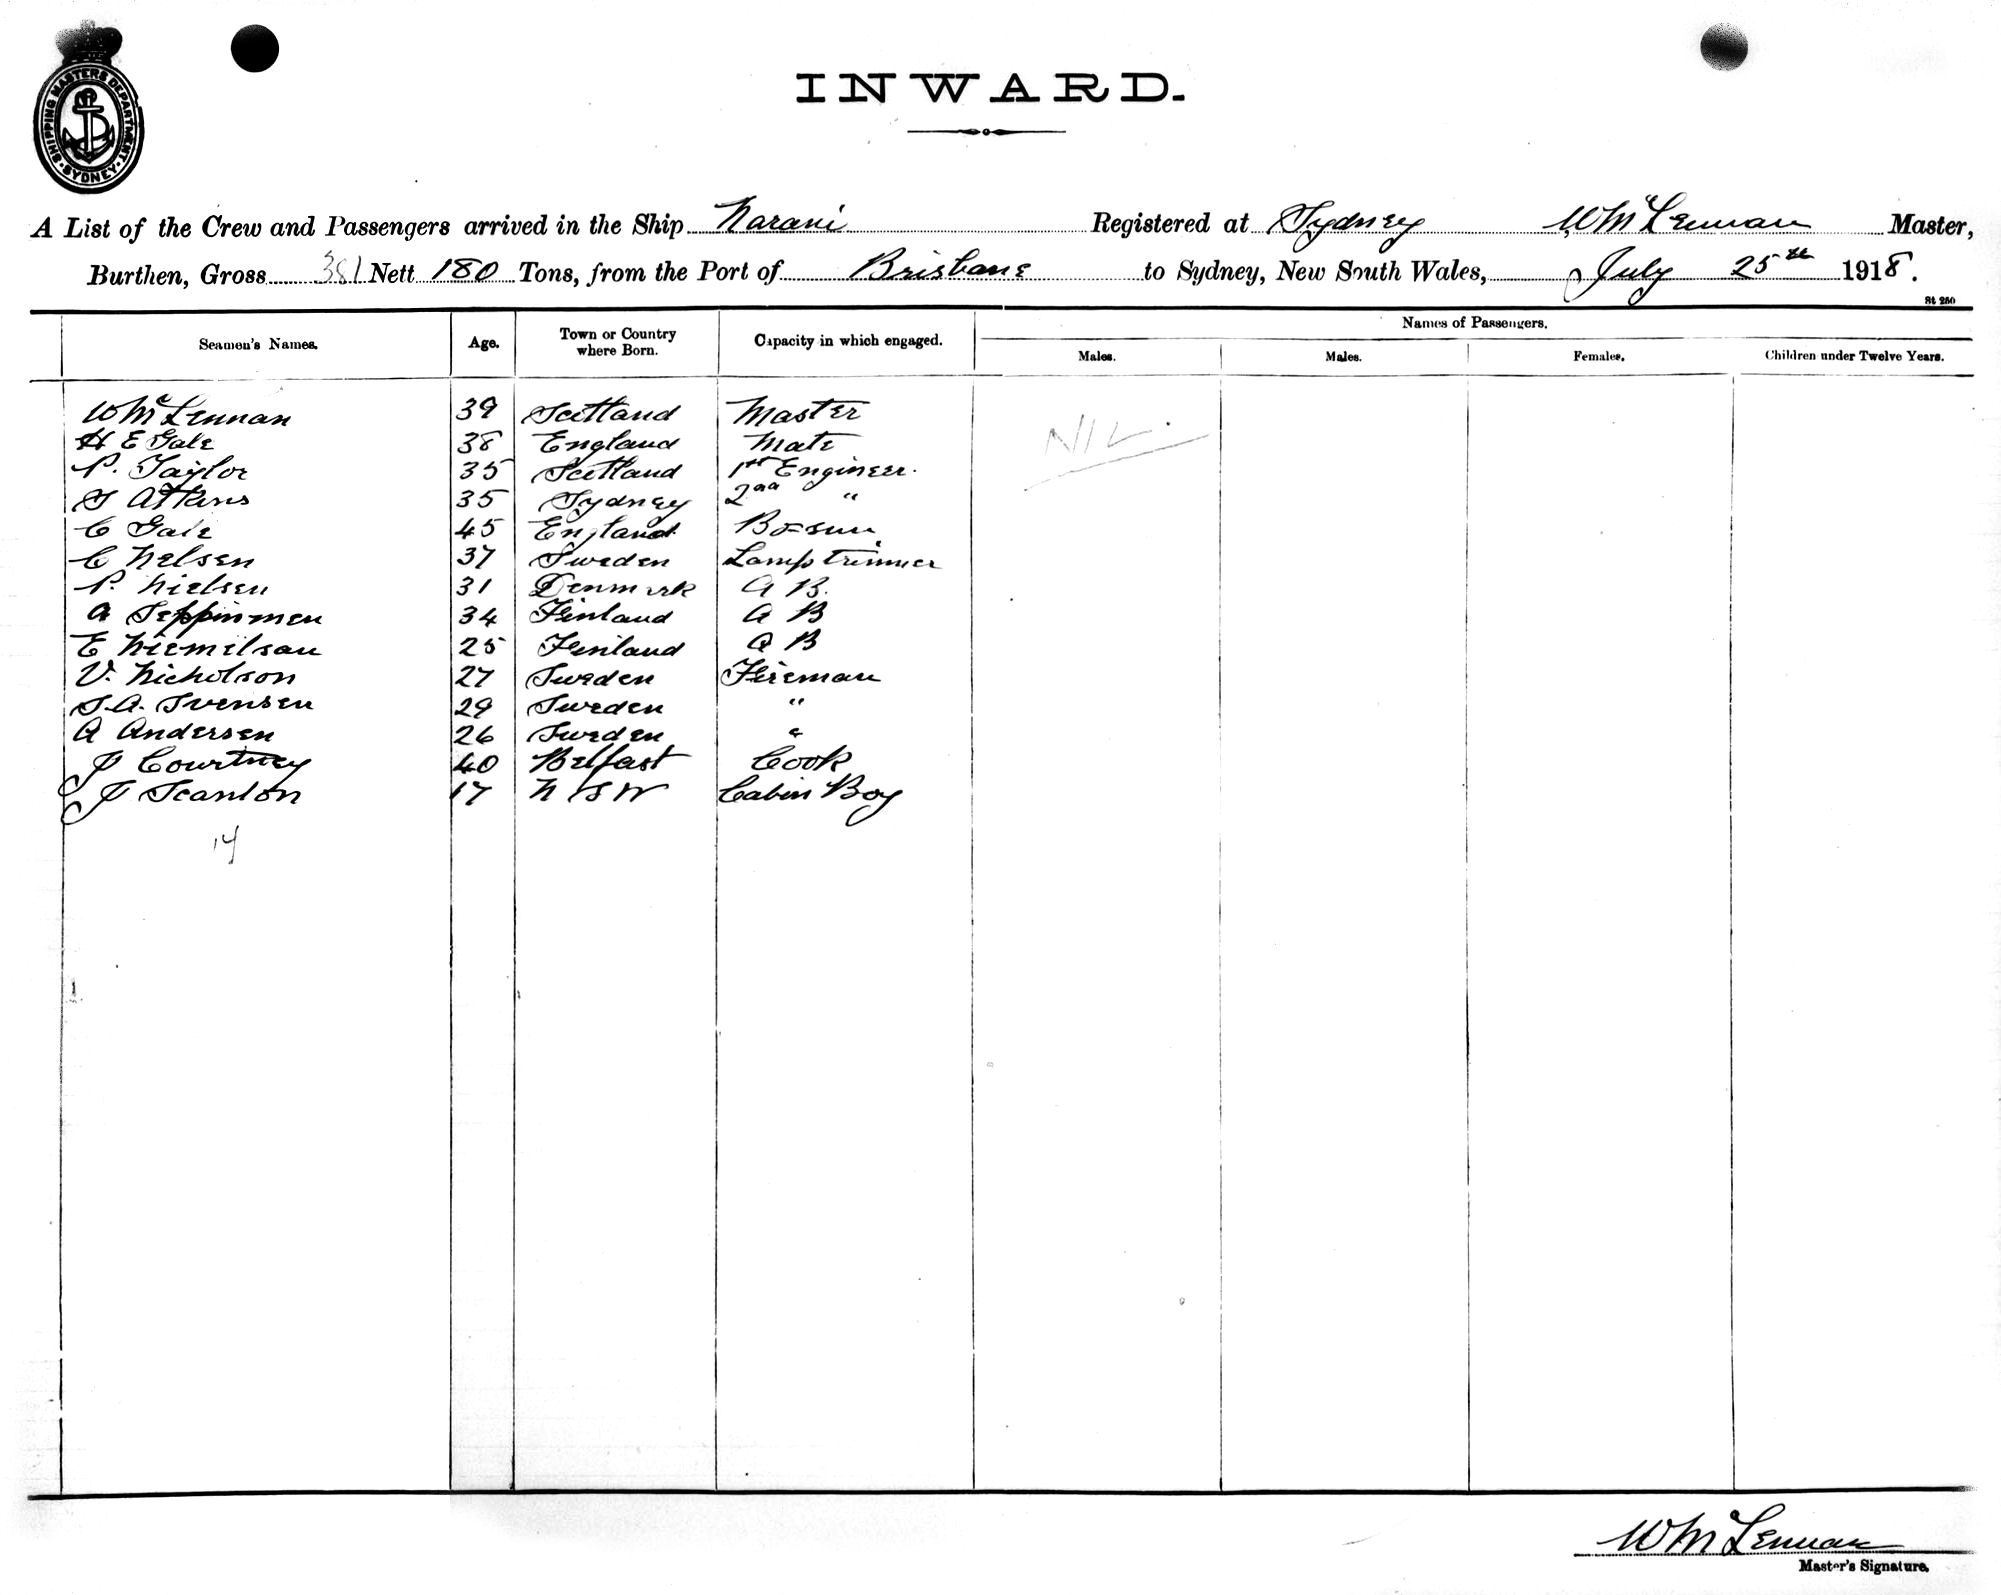 SHIPPING MASTERS DEPARTMENT
SYDNEY
INWARD.
A List of the Crew and Passengers arrived in the Ship Narani Registered at Sydney W McLennan Master,
Burthen, Gross 381 Nett 180 Tons, from the Port of Brisbane to Sydney, New South Wales, July 25th 1918.
St 260
Seamen's Names. Age. Town or Country where Born. Capacity in which engaged. Names of Passengers.
Males. Males. Females. Children under Twelve Years.
W McLennan 39 Scotland Master NIL.
H E Gale 38 England Mate
P. Taylor 35 Scotland 1st Engineer.
S Atkins 35 Sydney 2nd "
C Gale 45 England Bosun
C Nelsen 37 Sweden Lamp trimmer
P. Nielsen 31 Denmark A B.
A Seppinmen 34 Finland A B
E Niemilsau 25 Finland A B
V. Nicholson 27 Sweden Fireman
S.A. Svensen 29 Sweden "
A Andersen 26 Sweden "
J Courtney 40 Belfast Cook
J Scanlon 17 N S W Cabin Boy
14
W McLennan
Master's Signature.